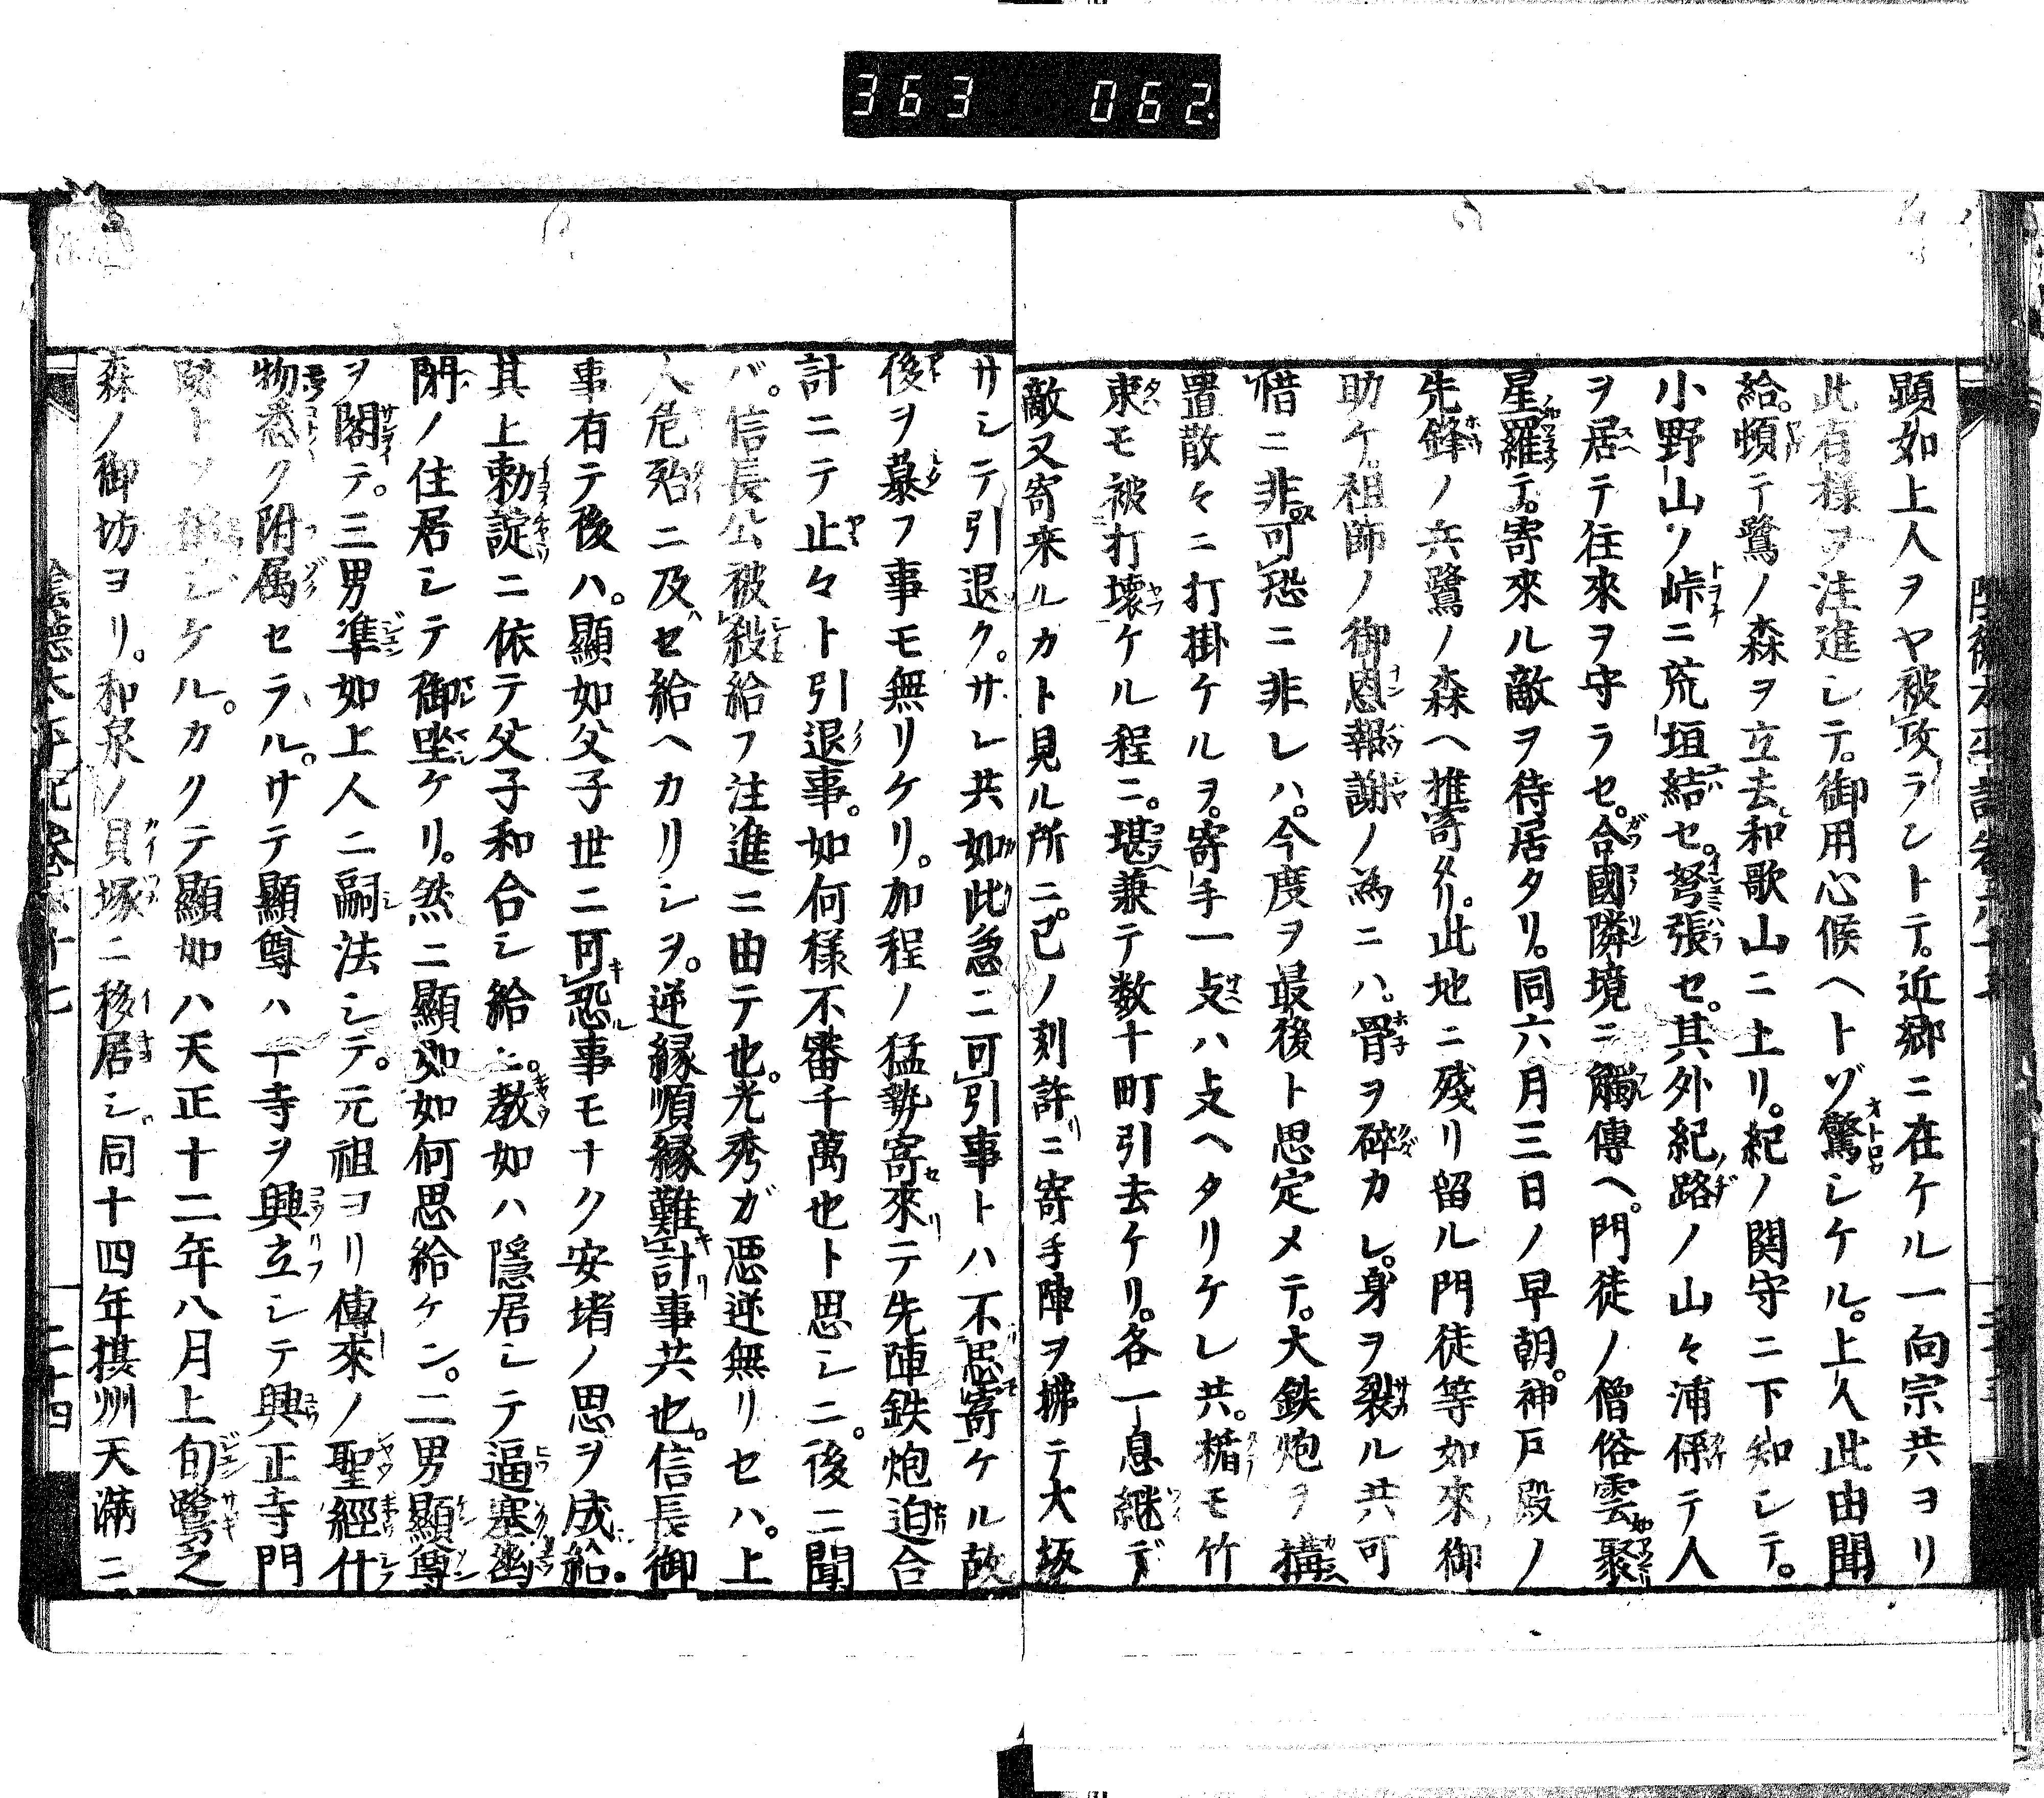 363 062
顕如上人ヲヤ被攻ラントテ。近郷ニ在ケル一向宗共ヨリ
此有様ヲ注進シテ。御用心候ヘトゾ驚シケル。上人此由聞
給。頓テ鷺ノ森ヲ立去和歌山ニ上リ。紀ノ関守ニ下知シテ。
小野山ノ峠ニ荒垣結セ。弩張セ。其外紀路ノ山々浦係テ人
ヲ居テ往來ヲ守ラセ。合國隣境ニ觸傳ヘ。門徒ノ僧俗雲聚
星羅テ。寄來ル敵ヲ待居タリ。同六月三日ノ早朝。神戸殿ノ
先鋒ノ兵鷺ノ森ヘ推寄タリ。此地ニ殘リ留ル門徒等如來御
助ケ。祖師ノ御恩報謝ノ為ニハ。骨ヲ碎カレ。身ヲ裂ル共可
惜ニ非可恐ニ非レハ。今度ヲ最後ト思定メテ。大鉄炮ヲ搆
置散々ニ打掛ケルヲ。寄手一支ハ支ヘタリケレ共。楯モ竹
束モ被打壊ケル程ニ。堪兼テ数十町引去ケリ。各一息継デ
敵又寄来ルカト見ル所ニ。巳ノ刻許ニ寄手陣ヲ拂テ大坂
サシテ引退ク。サレ共如此急ニ可引事トハ不思寄ケル故
後ヲ慕フ事モ無リケリ。加程ノ猛勢寄來テ先陣鉄炮迫合
計ニテ止々ト引退事。如何様不審千萬也ト思シニ。後ニ聞
バ。信長公被殺給フ注進ニ由テ也。光秀ガ悪逆無リセハ。上
人危殆ニ及セ給ヘカリシヲ。逆縁順縁難計事共也。信長御
事有テ後ハ。顯如父子世ニ可恐事モナク安堵ノ思ヲ成給。
其上勅諚ニ依テ父子和合シ給ニ。教如ハ隱居シテ逼塞幽
閉ノ住居シテ御坐ケリ。然ニ顯如如何思給ケン。二男顯尊
ヲ閣テ。三男准如上人ニ嗣法シテ。元祖ヨリ傳來ノ聖經什
物悉ク附属セラル。サテ顯尊ハ一寺ヲ興立シテ興正寺門
跡トソ號シケル。カクテ顯如ハ天正十二年八月上旬鷺之
森ノ御坊ヨリ。和泉ノ貝塚ニ移居シ。同十四年摂州天滿ニ
陰德太平記卷六十七
二十四